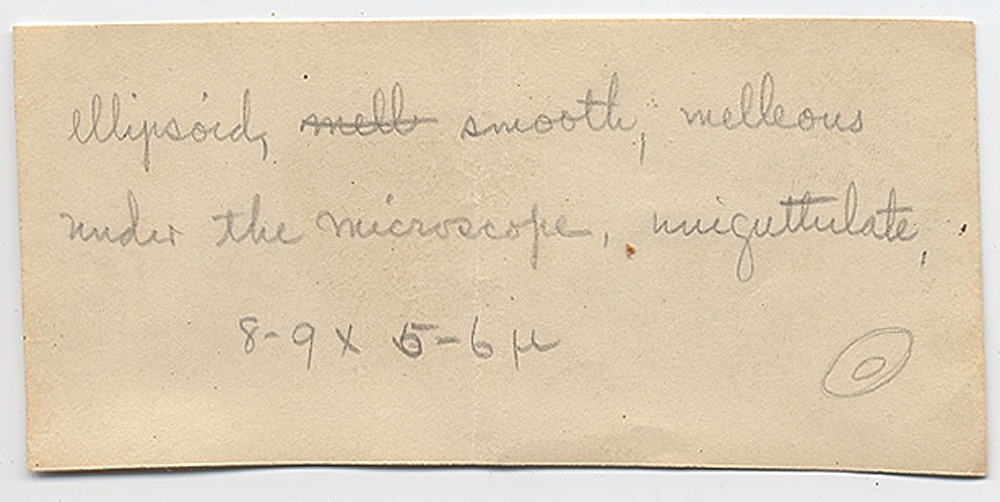 ellipsoid, mell smooth, melleous
under the microscope, uniguttulate,
8-9 x 5-6 µ